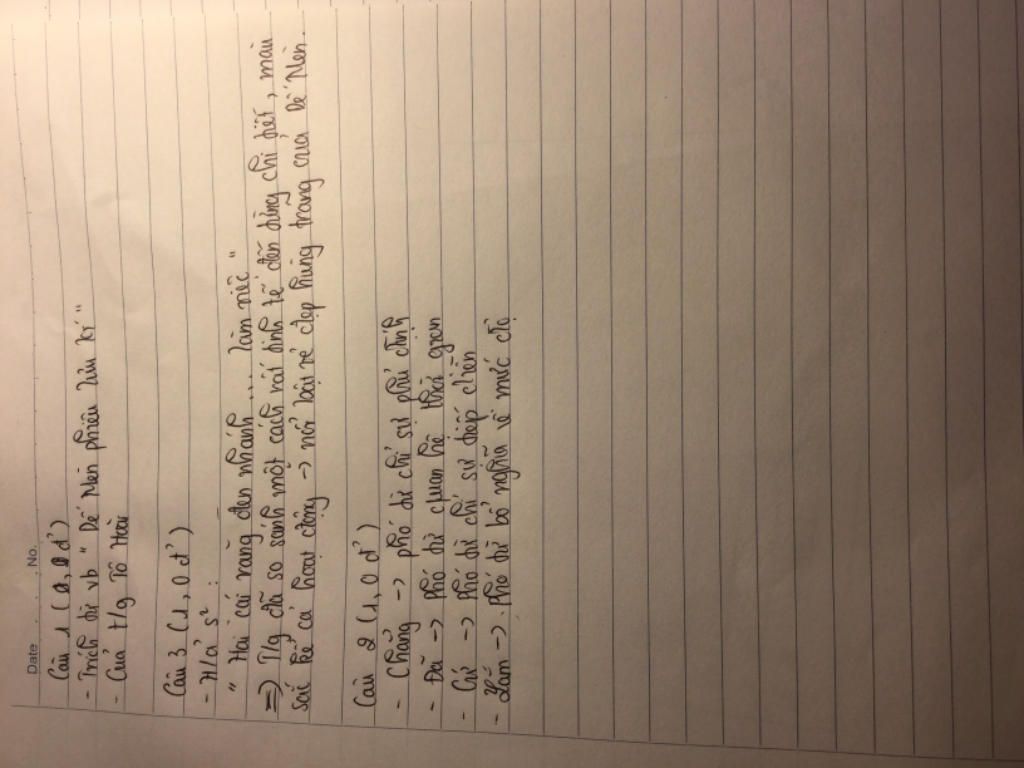 Date No.
Câu 1 (0,0 đ')
- Trích từ vb " Dế Mèn phiêu lưu kí "
- Của t/g Tô Hoài
Câu 3 (1,0 đ')
- H/ả' s² :
" Hai cái răng đen nhánh ... làm việc "
=> T/g đã so sánh một cách rất tinh tế đến từng chi tiết, màu
sắc kể cả hoạt động -> nổi bật vẻ đẹp hùng tráng của Dế Mèn.
Câu 2 (1,0 đ')
- Chẳng -> phó từ chỉ sự phủ định
- Đã -> Phó từ quan hệ thời gian
- Cứ -> Phó từ chỉ sự tiếp chẵn
- Lắm -> Phó từ bổ nghĩa về mức độ